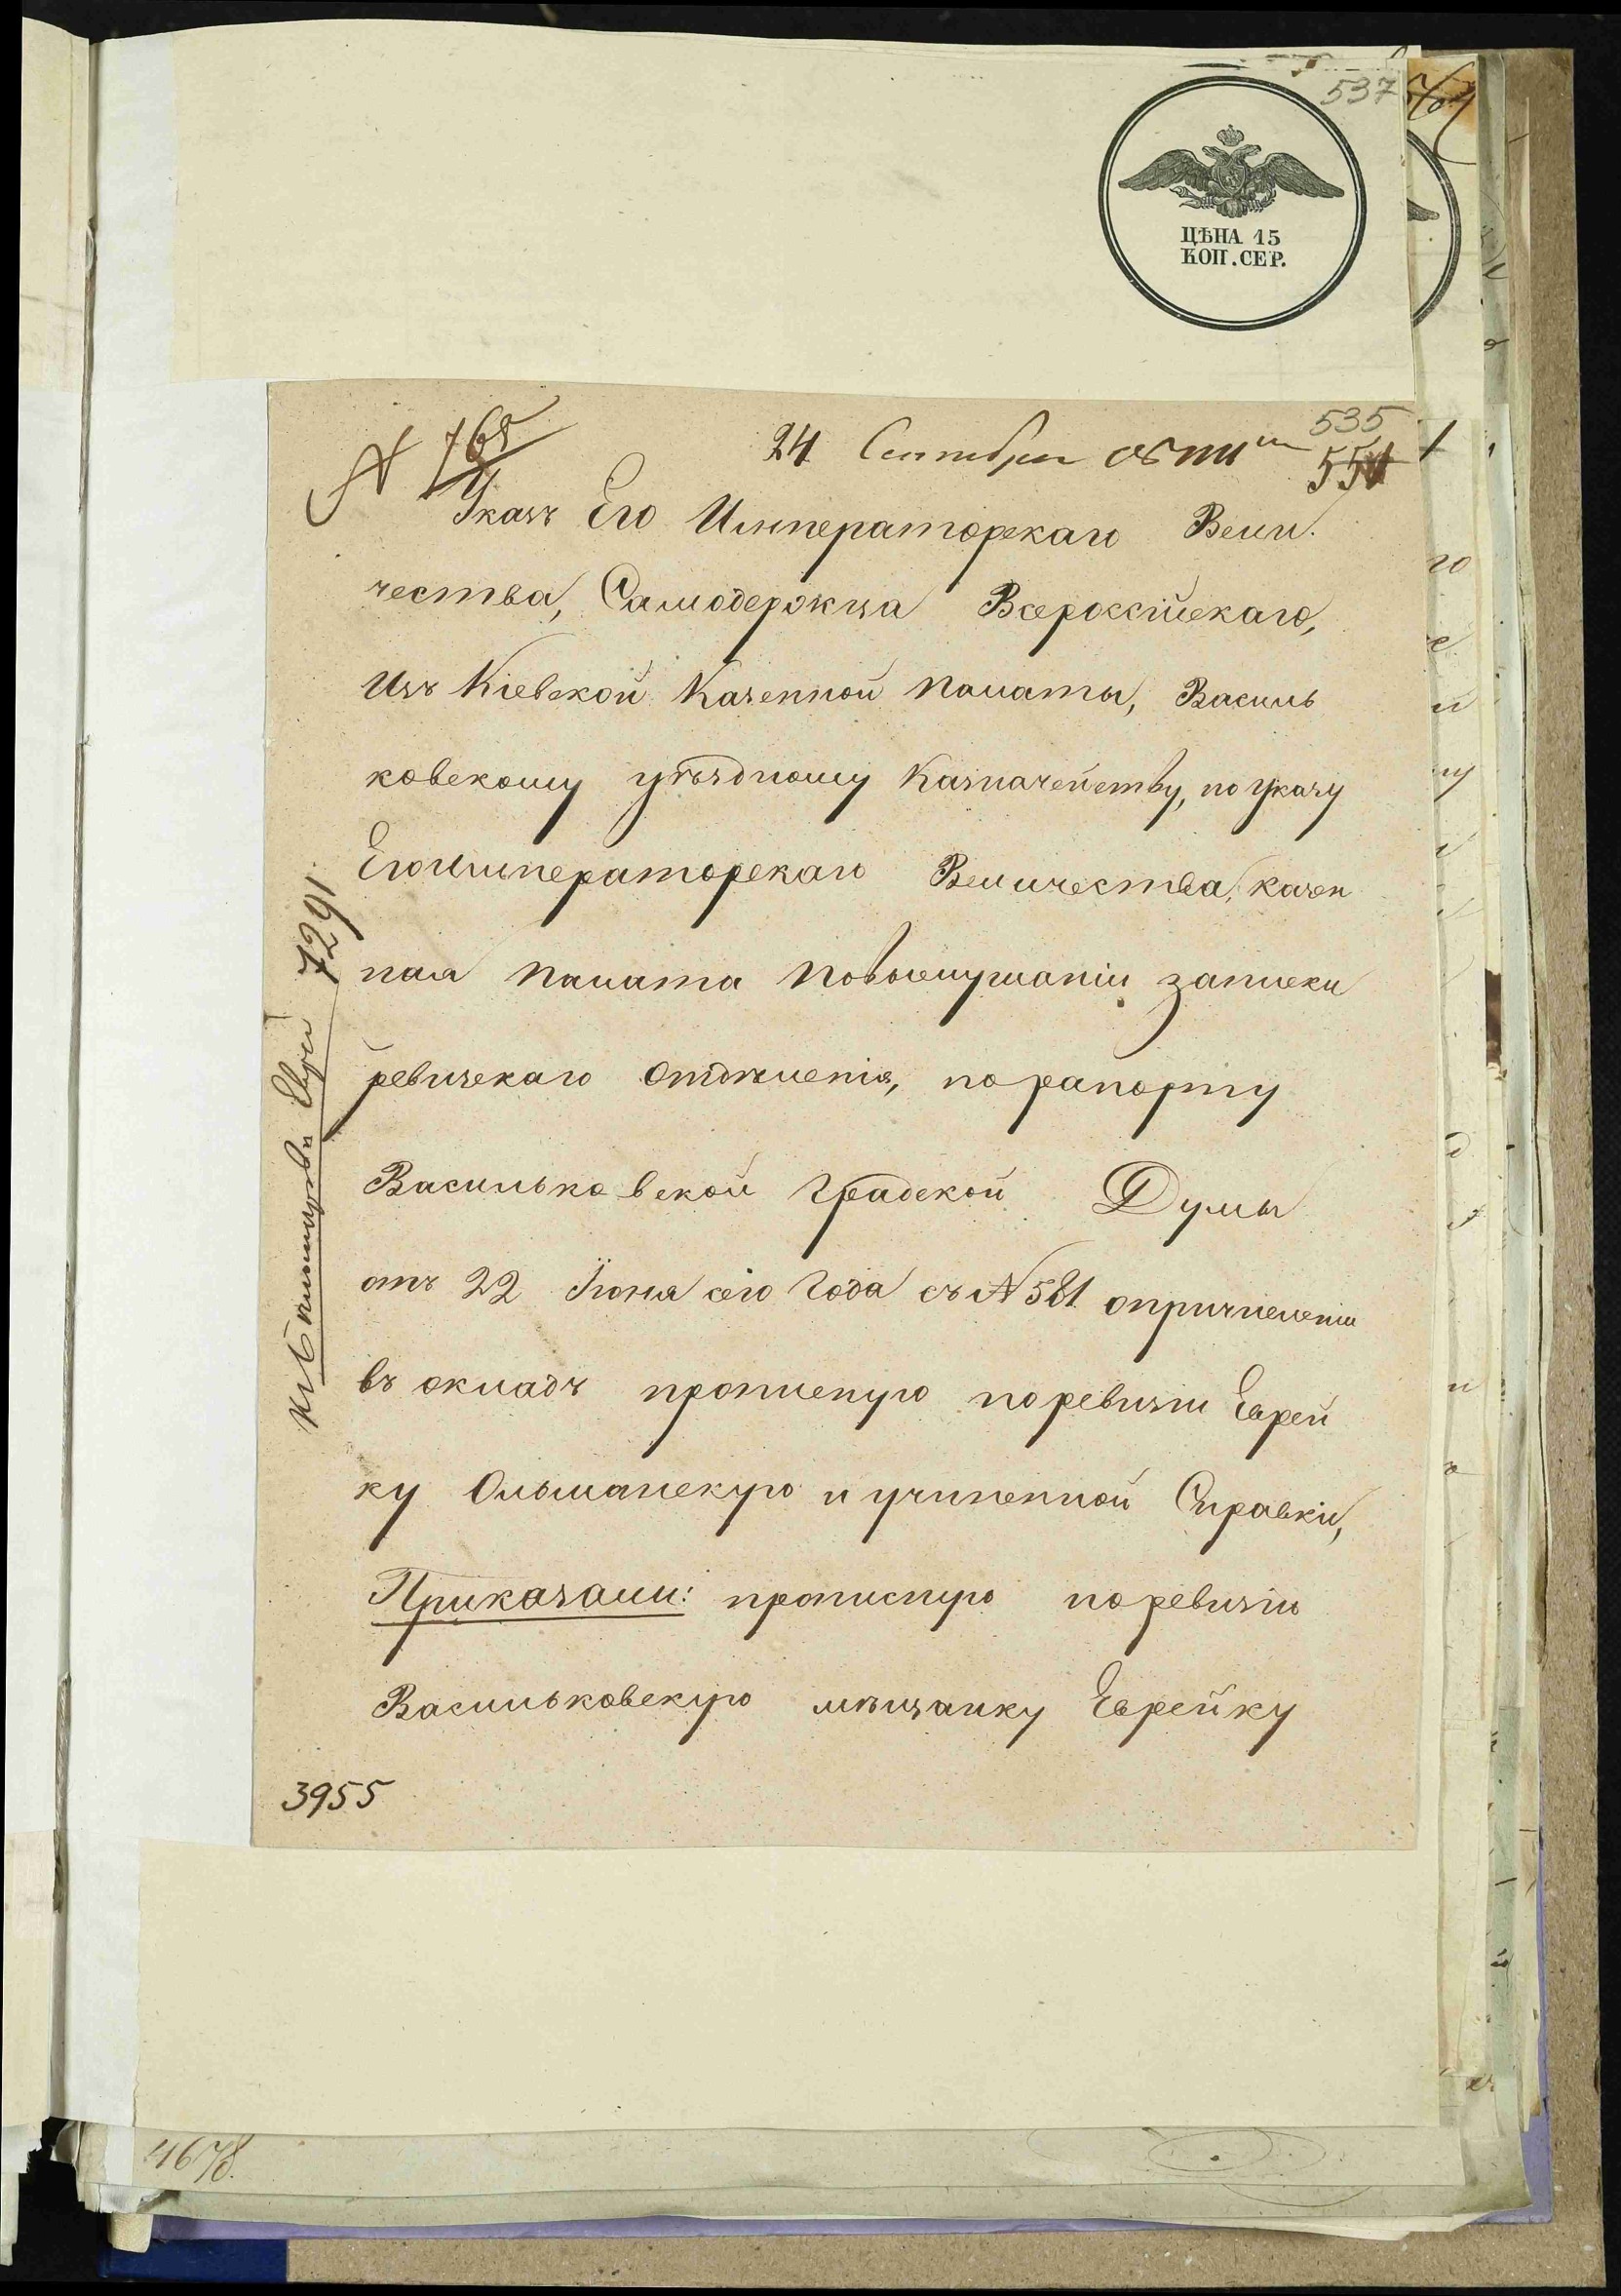 537
ЦѢНА 15
КОП. СЕР.
535
551
№ 765
24 Сентября
Указъ Его Императорскаго Вели-
чества, Самодержца Всероссійскаго,
Изъ Кіевской Казенной Палаты, Василь
ковскому уѣздному Казначейству, по указу
Его Императорскаго Величества, казен
ная Палата по выслушаніи записки
ревизскаго Отдѣленія, по рапорту
Васильковской Градской Думы
отъ 22 Іюня сего Года съ № 581 о причисленіи
въ окладъ прописную по ревизіи Еврей
ку Ольшанскую и учиненной Справки,
Приказали: прописную по ревизіи
Васильковскую мѣщанку Еврейку
3955
7291
4678.